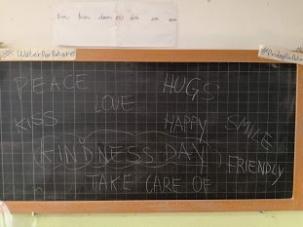 PEACE HUGS
LOVE
KISS HAPPY SMILE
KINDNESS DAY
FRIENDLY
TAKE CARE OF